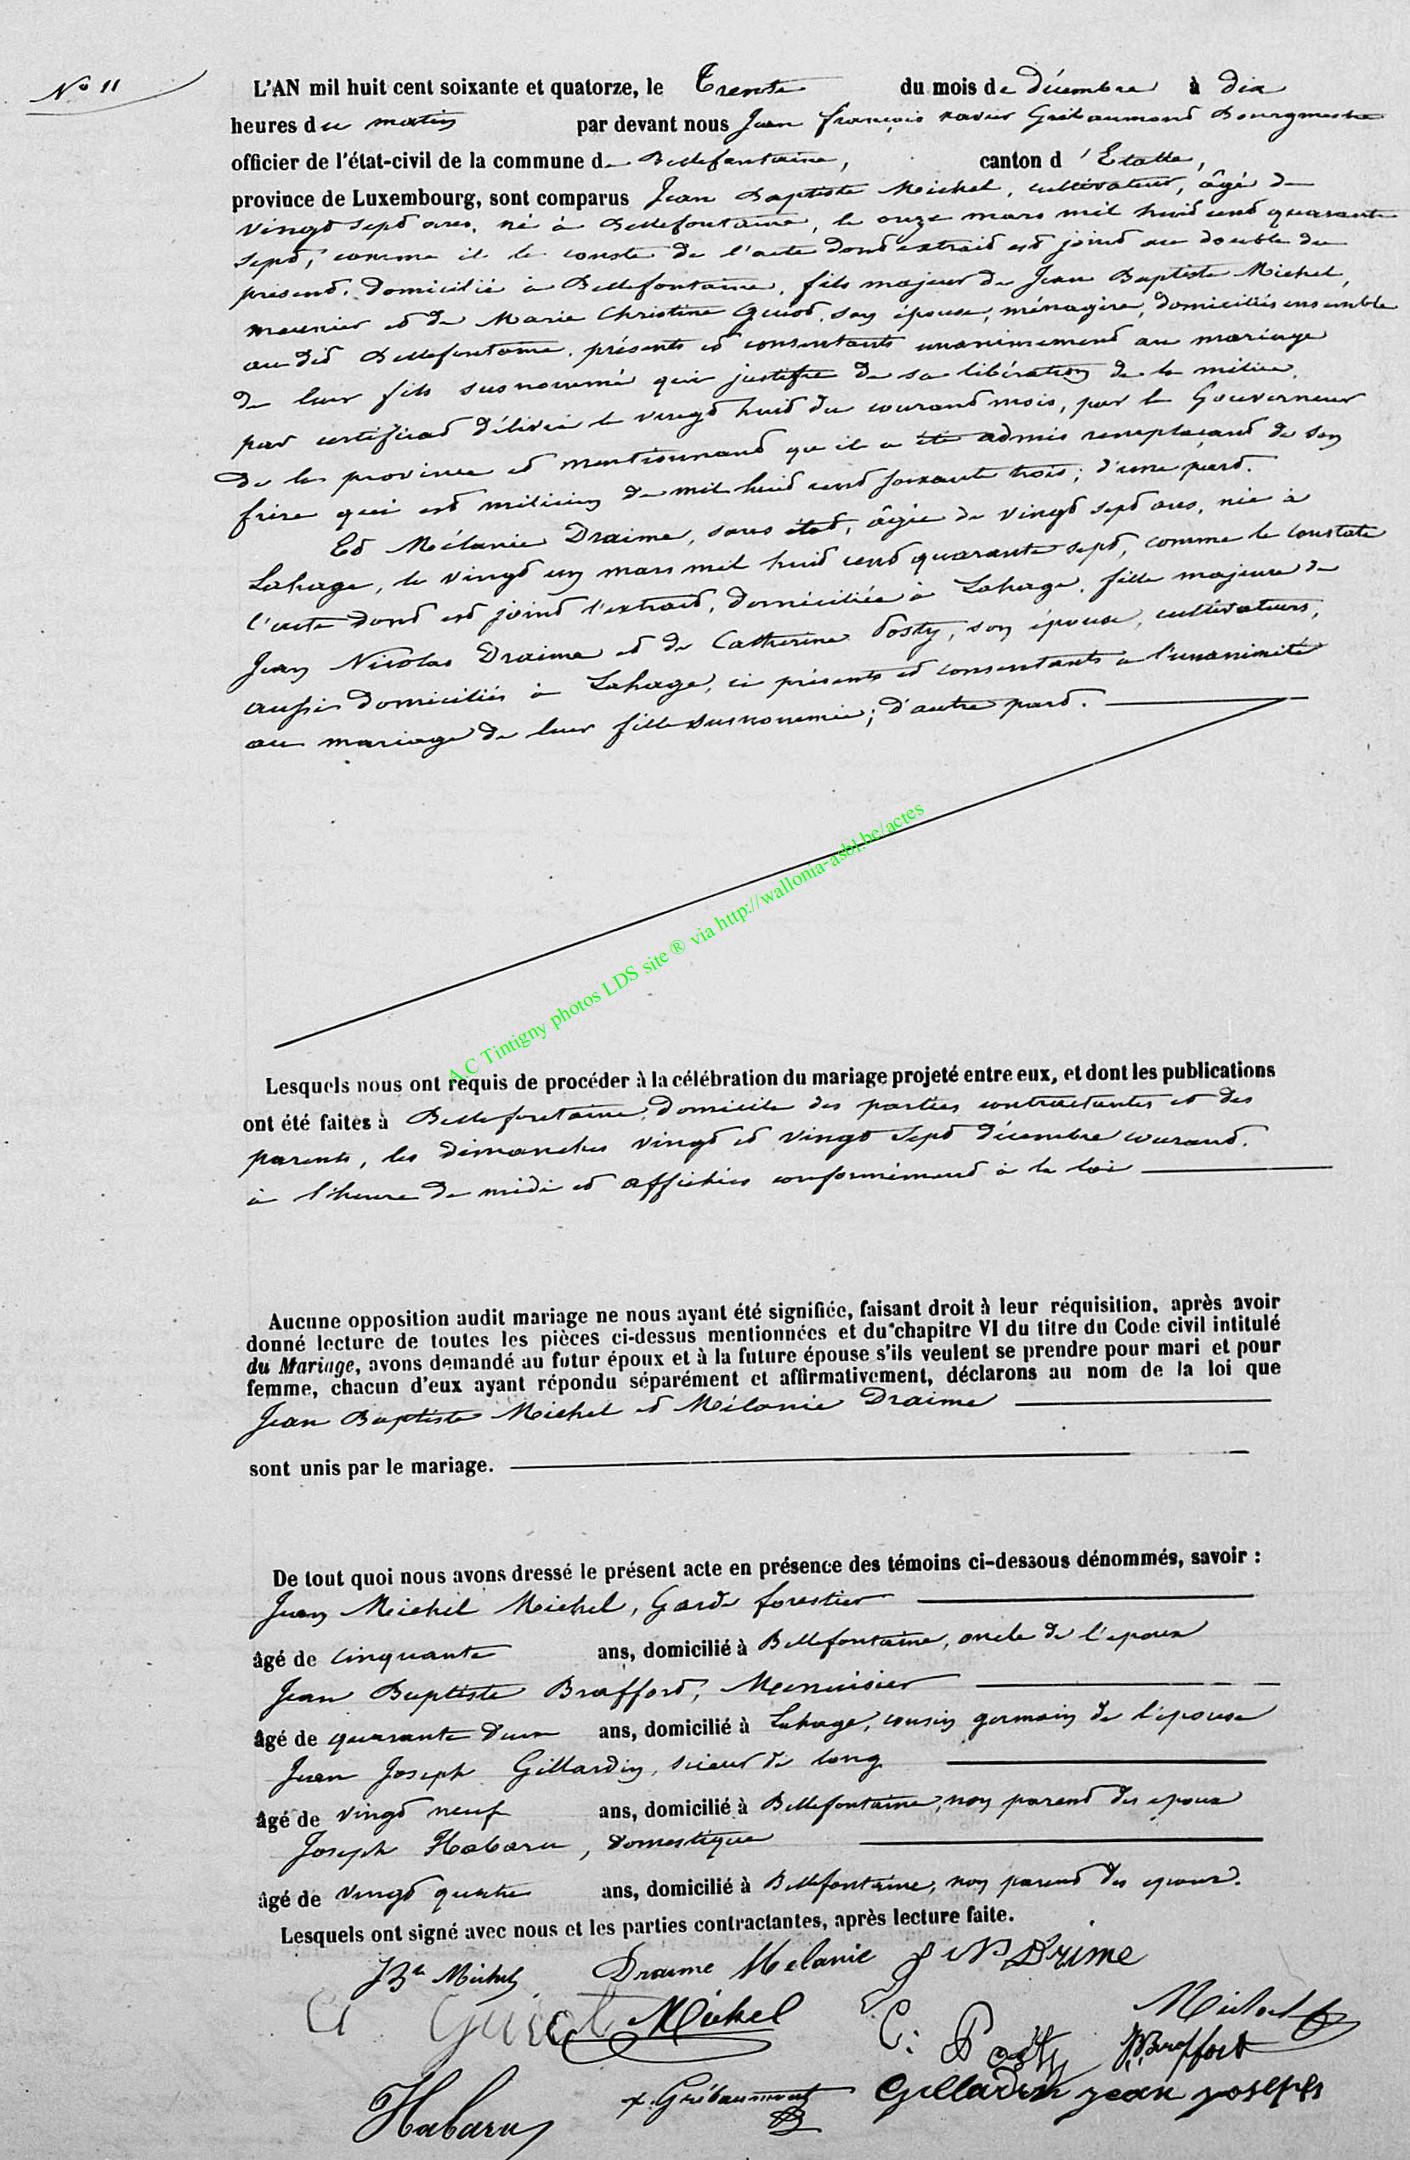 No 11
L'AN mil huit cent soixante et quatorze, le Trente du mois de décembre à dix
heures du matin par devant nous Jean françois xavier Gribaumont Bourgmestre
officier de l'état-civil de la commune de Bellefontaine, canton d'Etalle,
province de Luxembourg, sont comparus Jean Baptiste Michel, cultivateur, âgé de
vingt sept ans, né à Bellefontaine, le onze mars mil huit cent quarante
sept, comme il le conste de l'acte dont extrait est joint au double du
présent, domicilié à Bellefontaine, fils majeur de Jean Baptiste Michel,
meunier et de Marie Christine Guiot, son épouse, ménagère, domiciliés ensemble
au dit Bellefontaine, présents et consentants unanimement au mariage
de leur fils susnommé qui justifie de sa libération de la milice,
par certificat délivré le vingt huit du courant mois, par le Gouverneur
de la province et mentionnant qu'il a été admis remplaçant de son
frère qui est milicien de mil huit cent soixante trois; d'une part.
Et Mélanie Draime, sans état, âgée de vingt sept ans, née à
Lahage, le vingt un mars mil huit cent quarante sept, comme le constate
l'acte dont est joint l'extrait, domiciliée à Lahage, fille majeure de
Jean Nicolas Draime et de Catherine Posty, son épouse, cultivateurs,
aussi domiciliés à Lahage, ci présents et consentants à l'unanimité
au mariage de leur fille susnommée; d'autre part.
A C Tintigny photos LDS site ® via http://wallonia-asbl.be/actes
Lesquels nous ont requis de procéder à la célébration du mariage projeté entre eux, et dont les publications
ont été faites à Bellefontaine, domicile des parties contractantes et des
parents, les dimanches vingt et vingt sept décembre courant,
à l'heure de midi et affichées conformément à la loi
Aucune opposition audit mariage ne nous ayant été signifiée, faisant droit à leur réquisition, après avoir
donné lecture de toutes les pièces ci-dessus mentionnées et du chapitre VI du titre du Code civil intitulé
du Mariage, avons demandé au futur époux et à la future épouse s'ils veulent se prendre pour mari et pour
femme, chacun d'eux ayant répondu séparément et affirmativement, déclarons au nom de la loi que
Jean Baptiste Michel et Mélanie Draime
sont unis par le mariage.
De tout quoi nous avons dressé le présent acte en présence des témoins ci-dessous dénommés, savoir :
Jean Michel Michel, Garde forestier
âgé de cinquante ans, domicilié à Bellefontaine, oncle de l'époux
Jean Baptiste Braffort, Menuisier
âgé de quarante deux ans, domicilié à Lahage, cousin germain de l'épouse
Jean Joseph Gillardin, scieur de long
âgé de vingt neuf ans, domicilié à Bellefontaine, non parent des époux
Joseph Habaru, domestique
âgé de vingt quatre ans, domicilié à Bellefontaine, non parent des époux.
Lesquels ont signé avec nous et les parties contractantes, après lecture faite.
JBte Michel Draime Melanie J N Drime
Guiot Michel C. Posty Michel
JB Braffort
Habaru x. Gribaumont Gillardin jean joseph